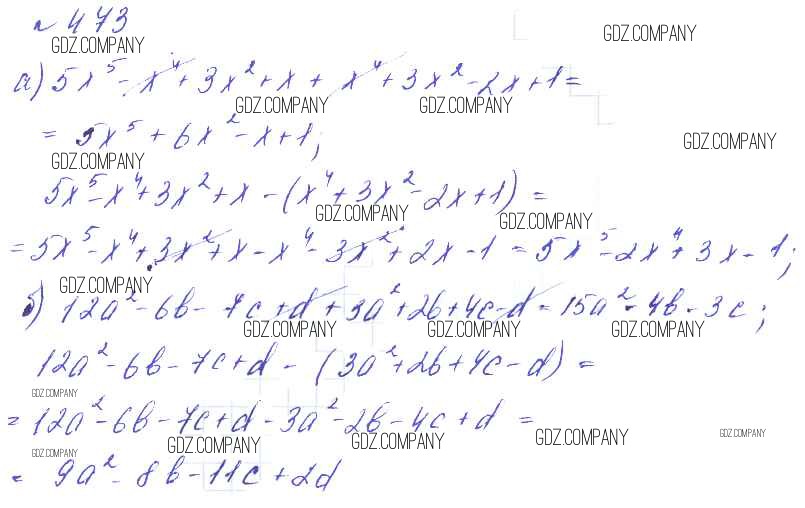 № 473
GDZ.COMPANY GDZ.COMPANY
а) 5x⁵ - x⁴ + 3x² + x + x⁴ + 3x² - 2x + 1 =
GDZ.COMPANY GDZ.COMPANY
= 5x⁵ + 6x² - x + 1;
GDZ.COMPANY GDZ.COMPANY
5x⁵ - x⁴ + 3x² + x - (x⁴ + 3x² - 2x + 1) =
GDZ.COMPANY GDZ.COMPANY
= 5x⁵ - x⁴ + 3x² + x - x⁴ - 3x² + 2x - 1 = 5x⁵ - 2x⁴ + 3x - 1;
GDZ.COMPANY
б) 12a² - 6b - 7c + d + 3a² + 2b + 4c - d = 15a² - 4b - 3c;
GDZ.COMPANY GDZ.COMPANY GDZ.COMPANY
12a² - 6b - 7c + d - (3a² + 2b + 4c - d) =
GDZ.COMPANY
= 12a² - 6b - 7c + d - 3a² - 2b - 4c + d =
GDZ.COMPANY GDZ.COMPANY GDZ.COMPANY GDZ.COMPANY GDZ.COMPANY
= 9a² - 8b - 11c + 2d